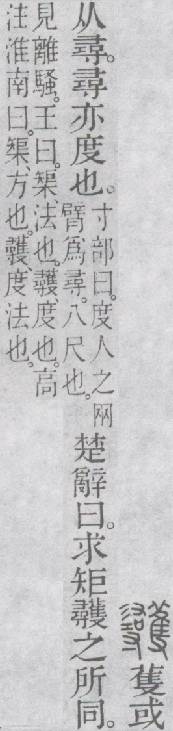 蒦或
从尋。尋亦度也。
寸部曰。度人之㒳
臂爲尋。八尺也。
楚辭曰。求矩彠之所同。
見離騷。王曰。榘、法也。彠、度也。高
注淮南曰。榘、方也。彠、度法也。